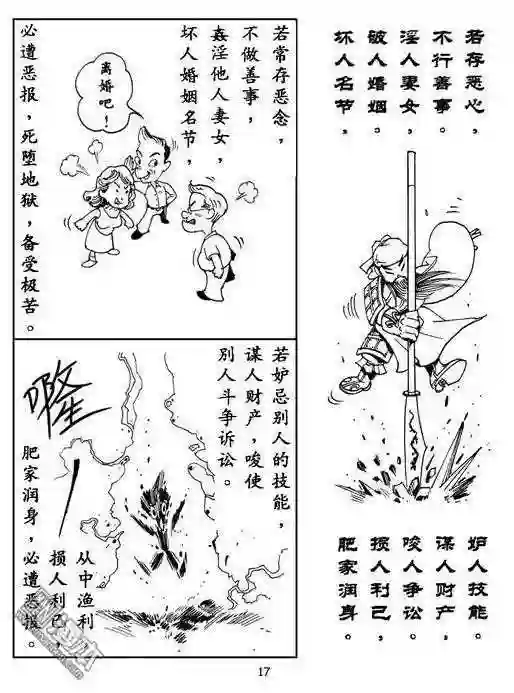 若存恶心，
不行善事。
淫人妻女，
破人婚姻。
坏人名节，
妒人技能。
谋人财产，
唆人争讼。
损人利己，
肥家润身。
若常存恶念，
不做善事，
姦淫他人妻女，
坏人婚姻名节，
离婚吧！
必遭恶报，死堕地狱，备受极苦。
若妒忌别人的技能，
谋人财产，唆使
别人斗争诉讼。
从中渔利
损人利己，
肥家润身，必遭恶报。
17